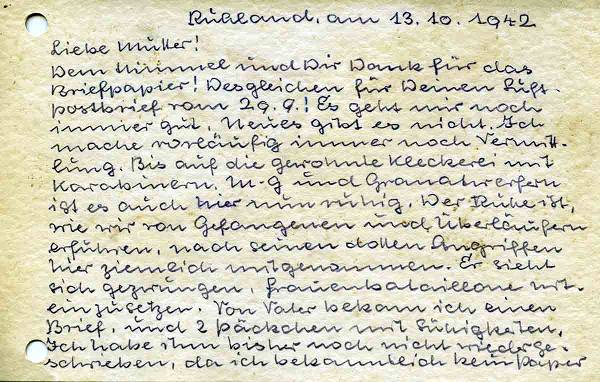 Rußland, am 13.10.1942
Liebe Mutter!
Dem Himmel und Dir Dank für das
Briefpapier! Desgleichen für Deinen Luft-
postbrief vom 29.9.! Es geht mir noch
immer gut. Neues gibt es nicht. Ich
mache vorläufig immer noch Vermitt-
lung. Bis auf die gewohnte Kleckerei mit
Karabinern, M-G und Granatwerfern
ist es auch hier nun ruhig. Der Ruße ist,
wie wir von Gefangenen und Überläufern
erfuhren, nach seinen dollen Angriffen
hier ziemlich mitgenommen. Er sieht
sich gezwungen, Frauenbataillone mit
einzusetzen. Von Vater bekam ich einen
Brief, und 2 Päckchen mit Süßigkeiten.
Ich habe ihm bisher noch nicht wiederge-
schrieben, da ich bekanntlich kein Papier